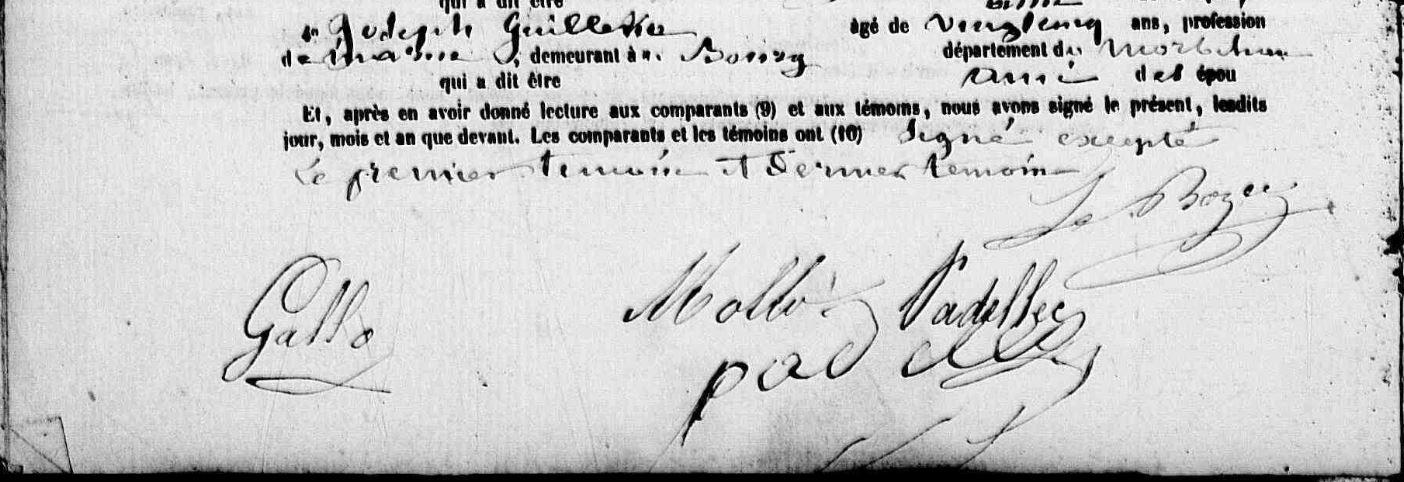 qui a dit être
4° Joseph Guillette âgé de vingt cinq ans, profession
de marin, demeurant à u. Bourg département du Morbihan
qui a dit être ami des épou
Et, après en avoir donné lecture aux comparants (9) et aux témoins, nous avons signé le présent, lesdits
jour, mois et an que devant. Les comparants et les témoins ont (10) signé excepté
Le premier temoin et dernier temoin
Le Bozec
Gallo Mollo Padellec
pad elle